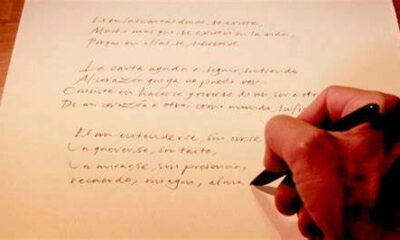 Es en las cartas donde se existe,
Mucho más que se existe en la vida,
Porque en ellas, se sobrevive
La carta ayuda a seguir, sintiendo
Al corazón que ya no puede ver.
Consiste en hacerse y vivirse de un ser a otro
De un corazón a otro, como manda, su
Es un entenderse, sin oirse
Un quererse, sin tacto,
Un mirarse, sin presencia,
recuerdo, imagen, alma